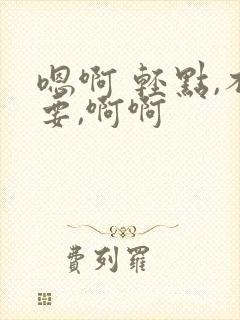 嗯啊 輕點,不
要,啊啊
費列羅